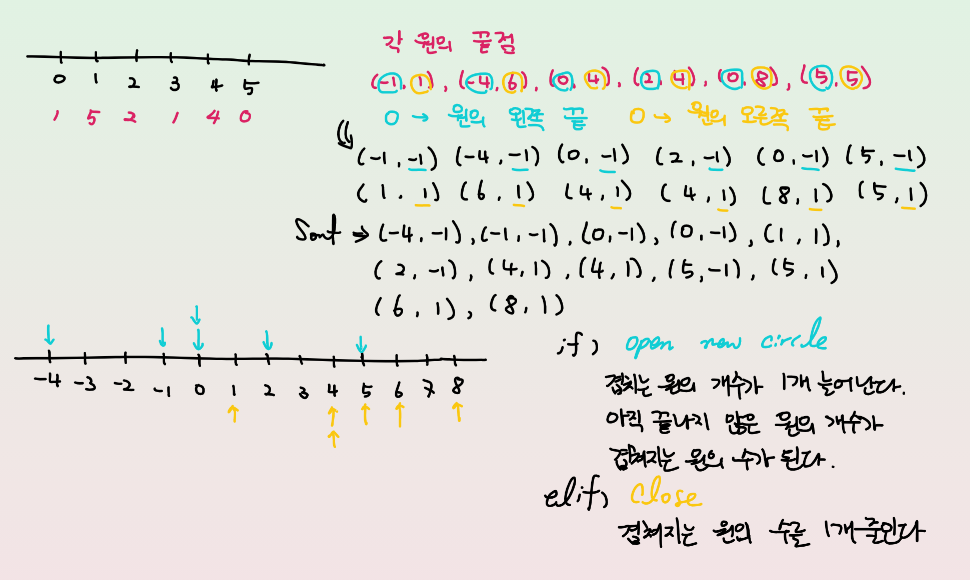 0 1 2 3 4 5
1 5 2 1 4 0
각 원의 끝점
(-1, 1), (-4, 6), (0, 4), (2, 4), (0, 8), (5, 5)
0 → 원의 왼쪽 끝 0 → 원의 오른쪽 끝
(-1, -1) (-4, -1) (0, -1) (2, -1) (0, -1) (5, -1)
(1, 1) (6, 1) (4, 1) (4, 1) (8, 1) (5, 1)
Sort → (-4, -1), (-1, -1), (0, -1), (0, -1), (1, 1),
(2, -1), (4, 1), (4, 1), (5, -1), (5, 1)
(6, 1), (8, 1)
-4 -3 -2 -1 0 1 2 3 4 5 6 7 8
if) open new circle
겹치는 원의 개수가 1개 늘어난다.
아직 끝나지 않은 원의 개수가
겹쳐지는 원의 수가 된다.
elif) close
겹쳐지는 원의 수를 1개 줄인다